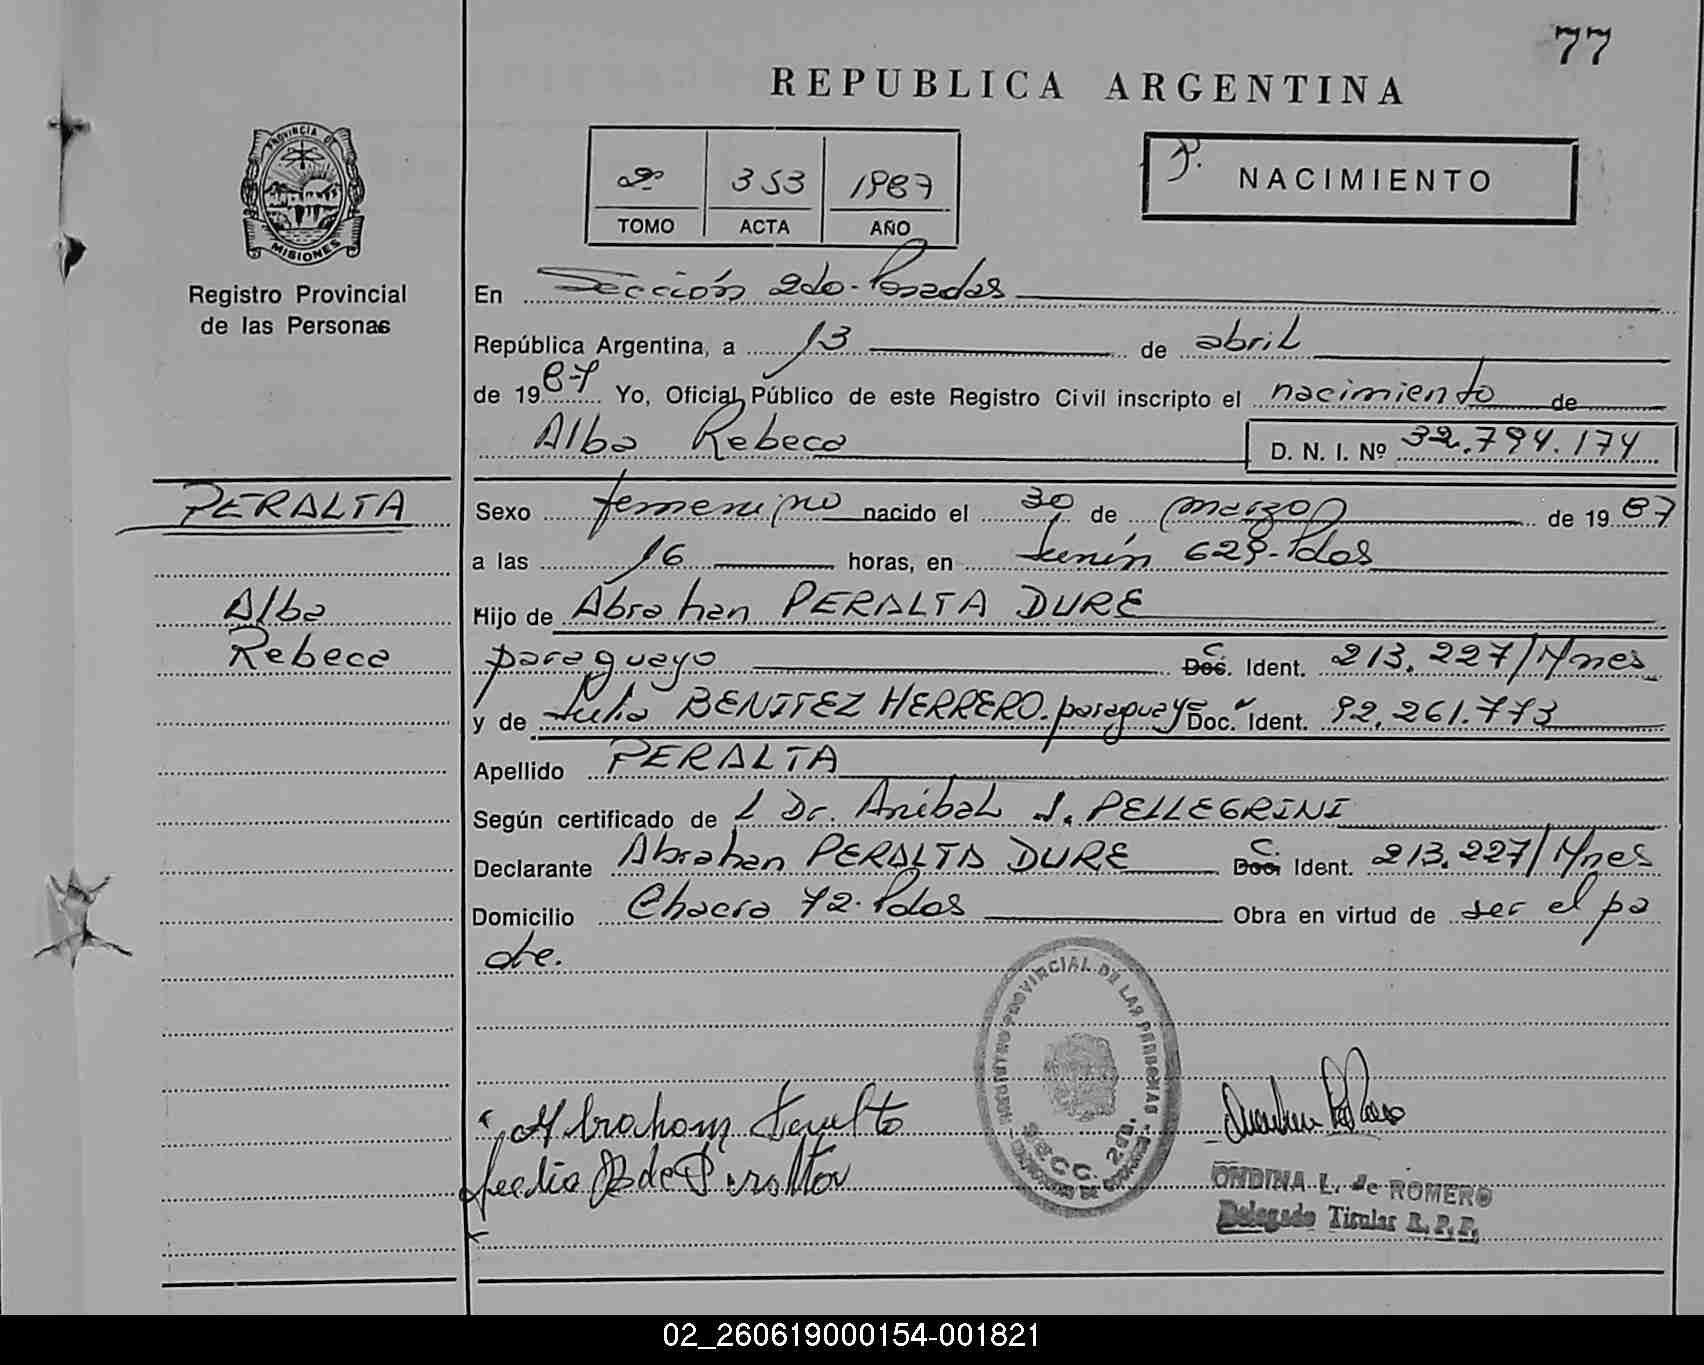 77
REPUBLICA ARGENTINA
PROVINCIA DE MISIONES
2º 353 1987
TOMO ACTA AÑO
P. NACIMIENTO
Registro Provincial
de las Personas
En Sección 2do-Posadas
República Argentina, a 13 de abril
de 1987 Yo, Oficial Público de este Registro Civil inscripto el nacimiento de
Alba Rebeca D. N. I. Nº 32.794.174
PERALTA
Alba
Rebeca
Sexo femenino nacido el 30 de marzo de 1987
a las 16 horas, en Junín 629-Pdas
Hijo de Abrahan PERALTA DURE
paraguayo C. Doc. Ident. 213.227/Mnes
y de Julia BENITEZ HERRERO. paraguaya Doc. Ident. 92.261.773
Apellido PERALTA
Según certificado de l Dr. Anibal J. PELLEGRINI
Declarante Abrahan PERALTA DURE C. Doc. Ident. 213.227/Mnes
Domicilio Chacra 72-Pdas Obra en virtud de ser el pa
dre.
REGISTRO PROVINCIAL DE LAS PERSONAS
SECC. 2da.
Abraham Peralta
ONDINA L. de ROMERO
Delegado Titular R. P. P.
02_260619000154-001821